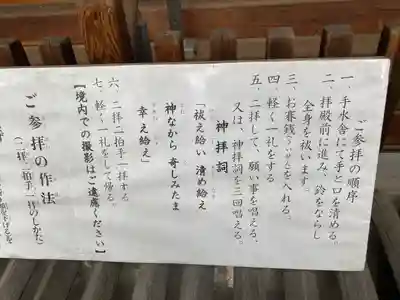 ご参拝の順序
一、手水舎にて手と口を清める。
二、拝殿前に進み、鈴をならし
全身を祓います。
三、お賽銭を入れる。
四、軽く一礼をする
五、二拝して、願い事を唱える。
又は、神拝詞を三回唱える。
神拝詞
「祓え給い 清め給え
神ながら 奇しみたま
幸え給え」
六、二拝二拍手一拝する
七、軽く一礼をして帰る。
【境内での撮影はご遠慮ください】
ご参拝の作法
(二拝二拍手一拝のしかた)